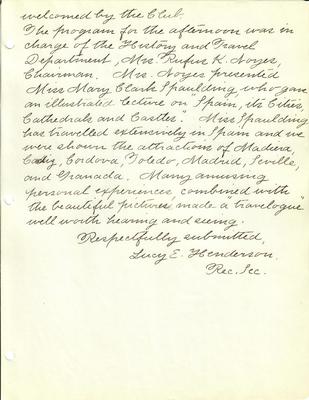 welcomed by the Club.
The program for the afternoon was in
charge of the History and Travel
Department, Mrs. Rufus K. Noyes,
Chairman. Mrs. Noyes presented
Miss Mary Clark Spaulding who gave
an illustrated lecture on "Spain, its Cities,
Cathedrals and Castles." Miss Spaulding
has travelled extensively in Spain and we
were shown the attractions of Madiera,
Cadiz, Cordova, Toledo, Madrid, Seville,
and Granada. Many amusing
personal experiences combined with
the beautiful pictures made a "travelogue"
well worth hearing and seeing.
Respectfully submitted,
Lucy E. Henderson.
Rec. Sec.